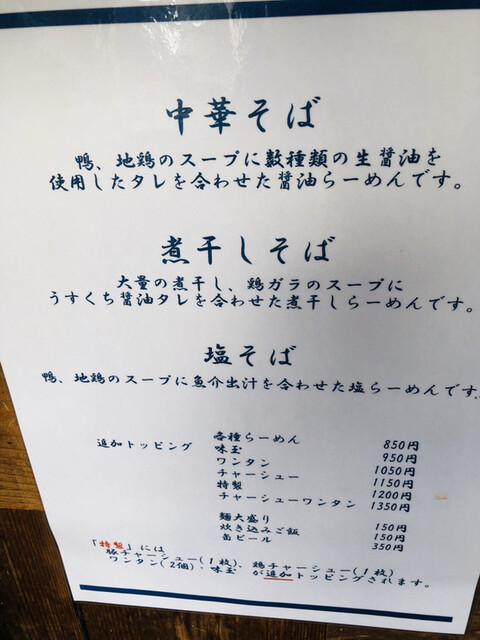 中華そば
鴨、地鶏のスープに数種類の生醤油を
使用したタレを合わせた醤油らーめんです。
煮干しそば
大量の煮干し、鶏ガラのスープに
うすくち醤油タレを合わせた煮干しらーめんです。
塩そば
鴨、地鶏のスープに魚介出汁を合わせた塩らーめんです。
各種らーめん 850円
追加トッピング 味玉 950円
ワンタン 1050円
チャーシュー 1150円
特製 1200円
チャーシューワンタン 1350円
麺大盛り 150円
炊き込みご飯 150円
缶ビール 350円
「特製」には
豚チャーシュー(1枚)、鶏チャーシュー(1枚)
ワンタン(2個)・味玉 が追加トッピングされます。